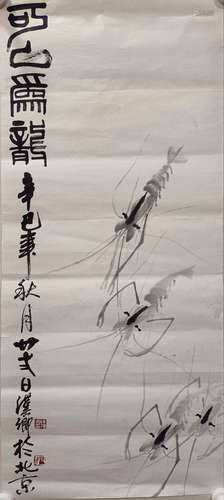 可以為龍
辛巳年秋月廿六日漢卿於北京